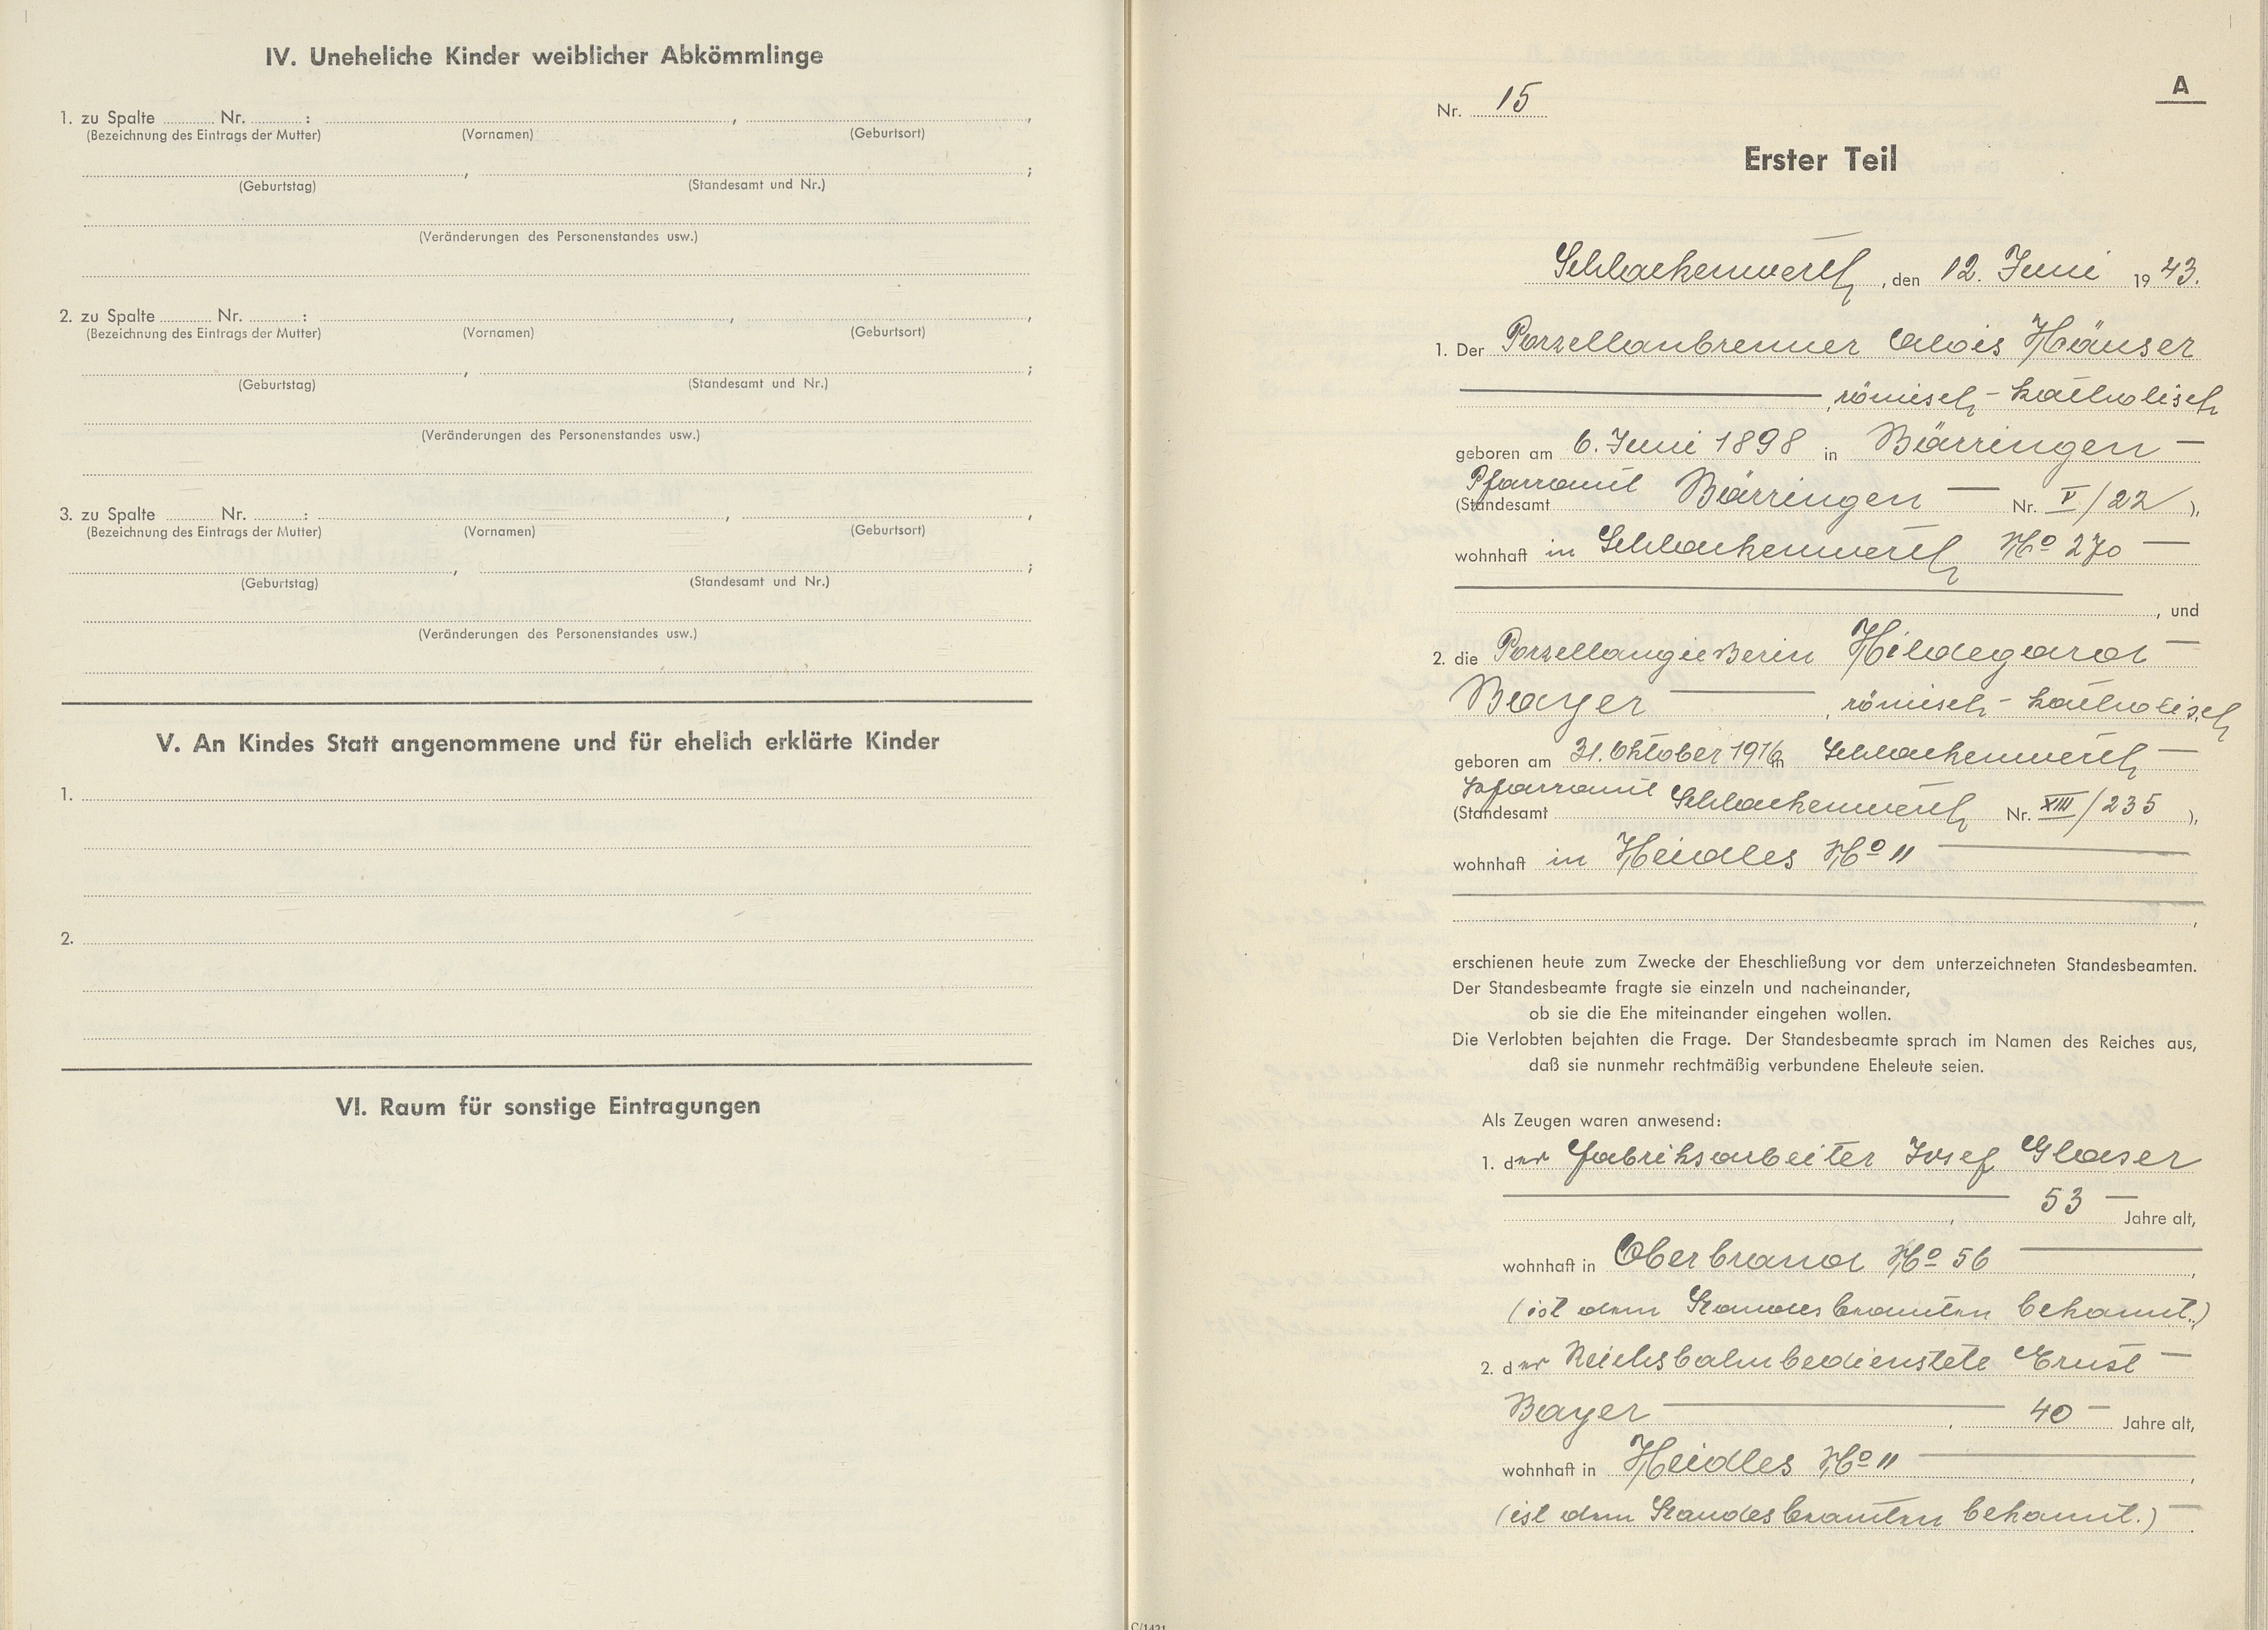 IV. Uneheliche Kinder weiblicher Abkömmlinge
1. zu Spalte ............ Nr. ............ : ............ , ............ ,
(Bezeichnung des Eintrags der Mutter) (Vornamen) (Geburtsort)
............ , ............ ;
(Geburtstag) (Standesamt und Nr.)
(Veränderungen des Personenstandes usw.)
2. zu Spalte ............ Nr. ............ : ............ , ............ ,
(Bezeichnung des Eintrags der Mutter) (Vornamen) (Geburtsort)
............ , ............ ;
(Geburtstag) (Standesamt und Nr.)
(Veränderungen des Personenstandes usw.)
3. zu Spalte ............ Nr. ............ : ............ , ............ ,
(Bezeichnung des Eintrags der Mutter) (Vornamen) (Geburtsort)
............ , ............ ;
(Geburtstag) (Standesamt und Nr.)
(Veränderungen des Personenstandes usw.)
V. An Kindes Statt angenommene und für ehelich erklärte Kinder
1.
2.
VI. Raum für sonstige Eintragungen
A
Nr. 15
Erster Teil
Schlackenwerth, den 12. Juni 1943.
1. Der Porzellanbrenner Alois Häuser
—, römisch-katholisch
geboren am 6. Juni 1898 in Bärringen —
Pfarramt
(Standesamt Bärringen — Nr. V/22),
wohnhaft in Schlackenwerth No 270 —
—, und
2. die Porzellangießerin Hildegard —
Bayer —, römisch-katholisch
geboren am 31. Oktober 1916 in Schlackenwerth —
Pfarramt
(Standesamt Schlackenwerth Nr. XIII/235),
wohnhaft in Heidles No 11 —
—,
erschienen heute zum Zwecke der Eheschließung vor dem unterzeichneten Standesbeamten.
Der Standesbeamte fragte sie einzeln und nacheinander,
ob sie die Ehe miteinander eingehen wollen.
Die Verlobten bejahten die Frage. Der Standesbeamte sprach im Namen des Reiches aus,
daß sie nunmehr rechtmäßig verbundene Eheleute seien.
Als Zeugen waren anwesend:
1. der Fabriksarbeiter Josef Glaser
—, 53 — Jahre alt,
wohnhaft in Oberbrand No 56 —,
(ist dem Standesbeamten bekannt.)
2. der Reichsbahnbedienstete Ernst —
Bayer —, 40 — Jahre alt,
wohnhaft in Heidles No 11 —,
(ist dem Standesbeamten bekannt.) —
C/1421